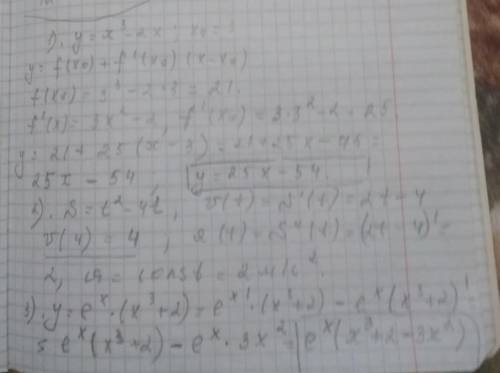 1). y = x³ - 2x; x₀ = 3
y = f(x₀) + f'(x₀) (x - x₀)
f(x₀) = 3³ - 2·3 = 21.
f'(x) = 3x² - 2, f'(x₀) = 3·3² - 2 = 25
y = 21 + 25 (x - 3) = 21 + 25x - 75 =
25x - 54 y = 25x - 54.
2). S = t² - 4t, v(t) = S'(t) = 2t - 4
v(4) = 4; a(t) = S''(t) = (2t - 4)' =
2, a = const = 2 м/с².
3). y = eˣ · (x³ + 2) = eˣ' · (x³ + 2) - eˣ (x³ + 2)'
= eˣ (x³ + 2) - eˣ · 3x² = eˣ (x³ + 2 - 3x²)